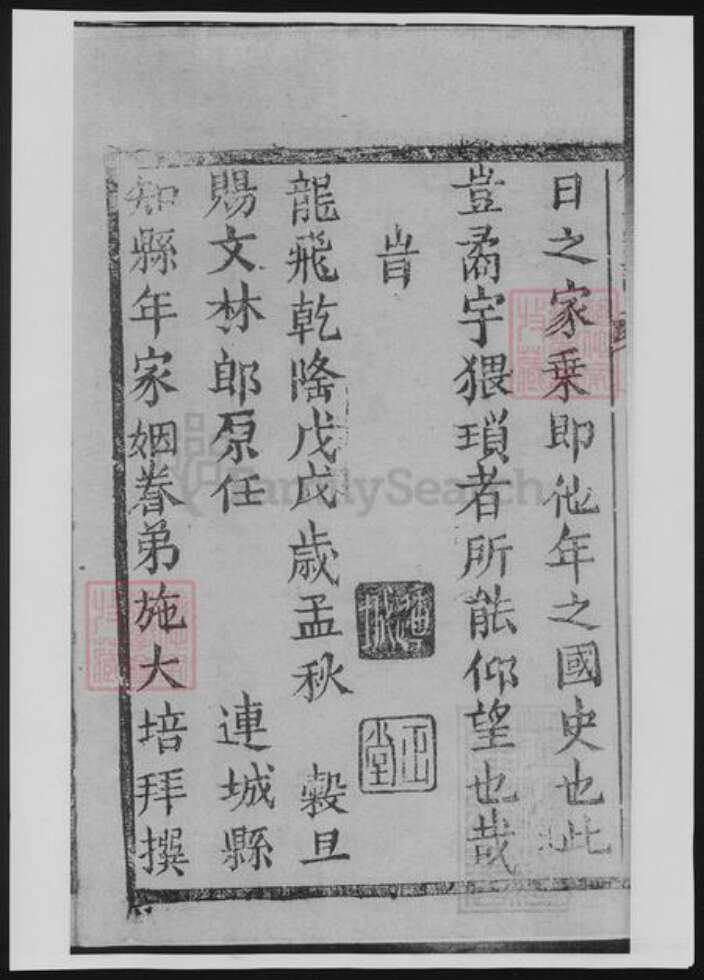 日之家乗即他年之國史也此
豈矞宇猥瑣者所能仰望也哉
旹
龍飛乾隆戊戌歳孟秋 穀旦
賜文林郎原任 連城縣
知縣年家姻眷弟施大培拜撰
正堂
FamilySearch